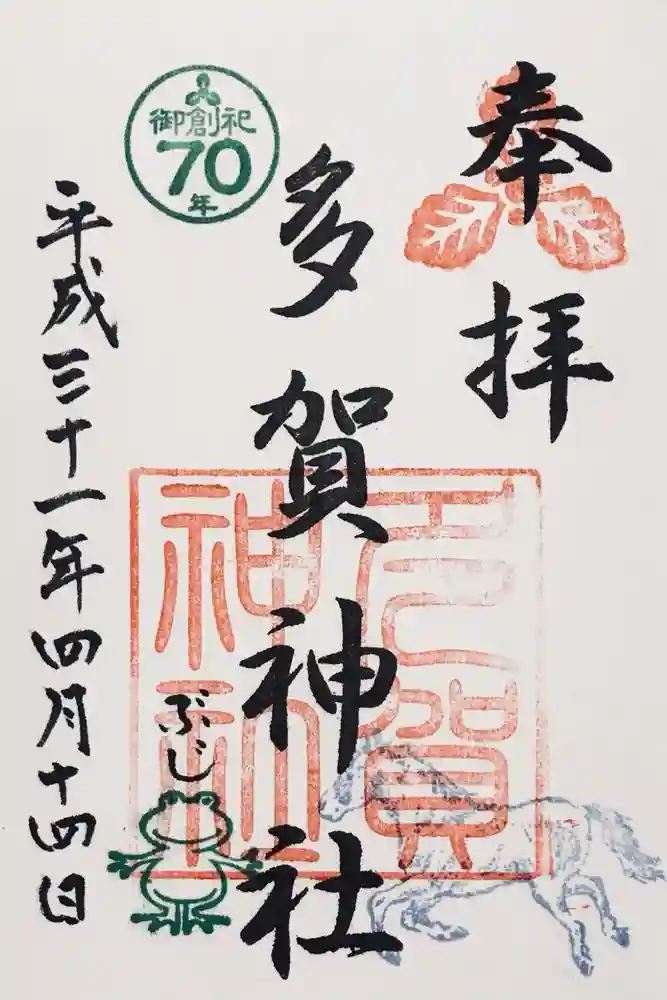 奉拝
多賀神社
御創祀
70
年
平成三十一年四月十四日
ぶじ
多賀
神社